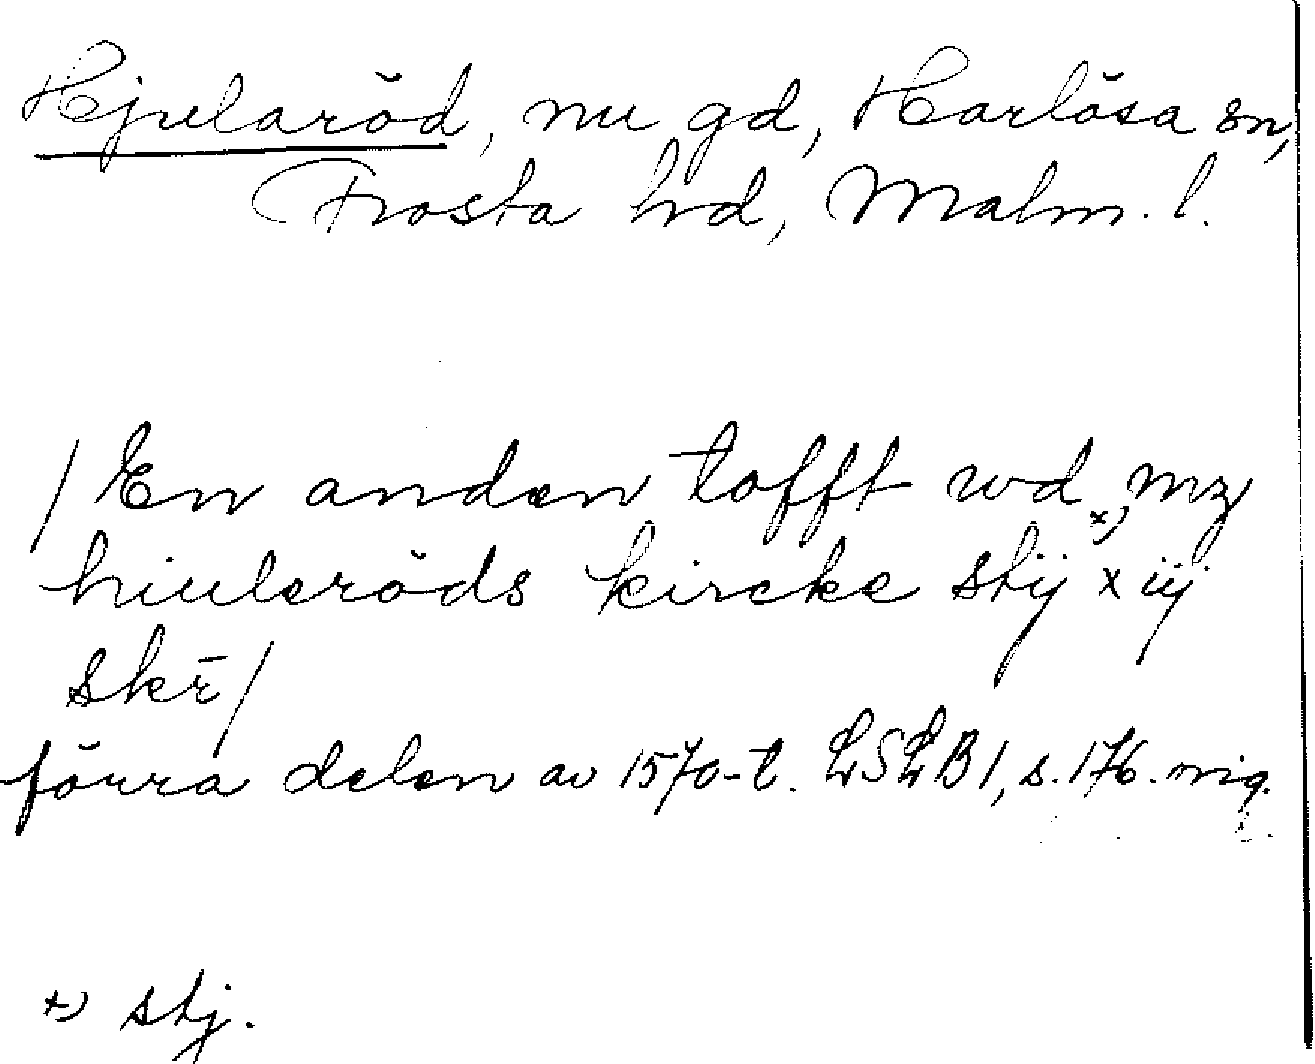 Hjularöd, nu gd, Harlösa sn,
Frosta hd, Malm. l.
/ En anden tofft wd x) mz
hiuleröds kircke stij x iij
skr̄ /
förra delen av 1570-t. LSLB 1, s. 176. orig.
x) stj.